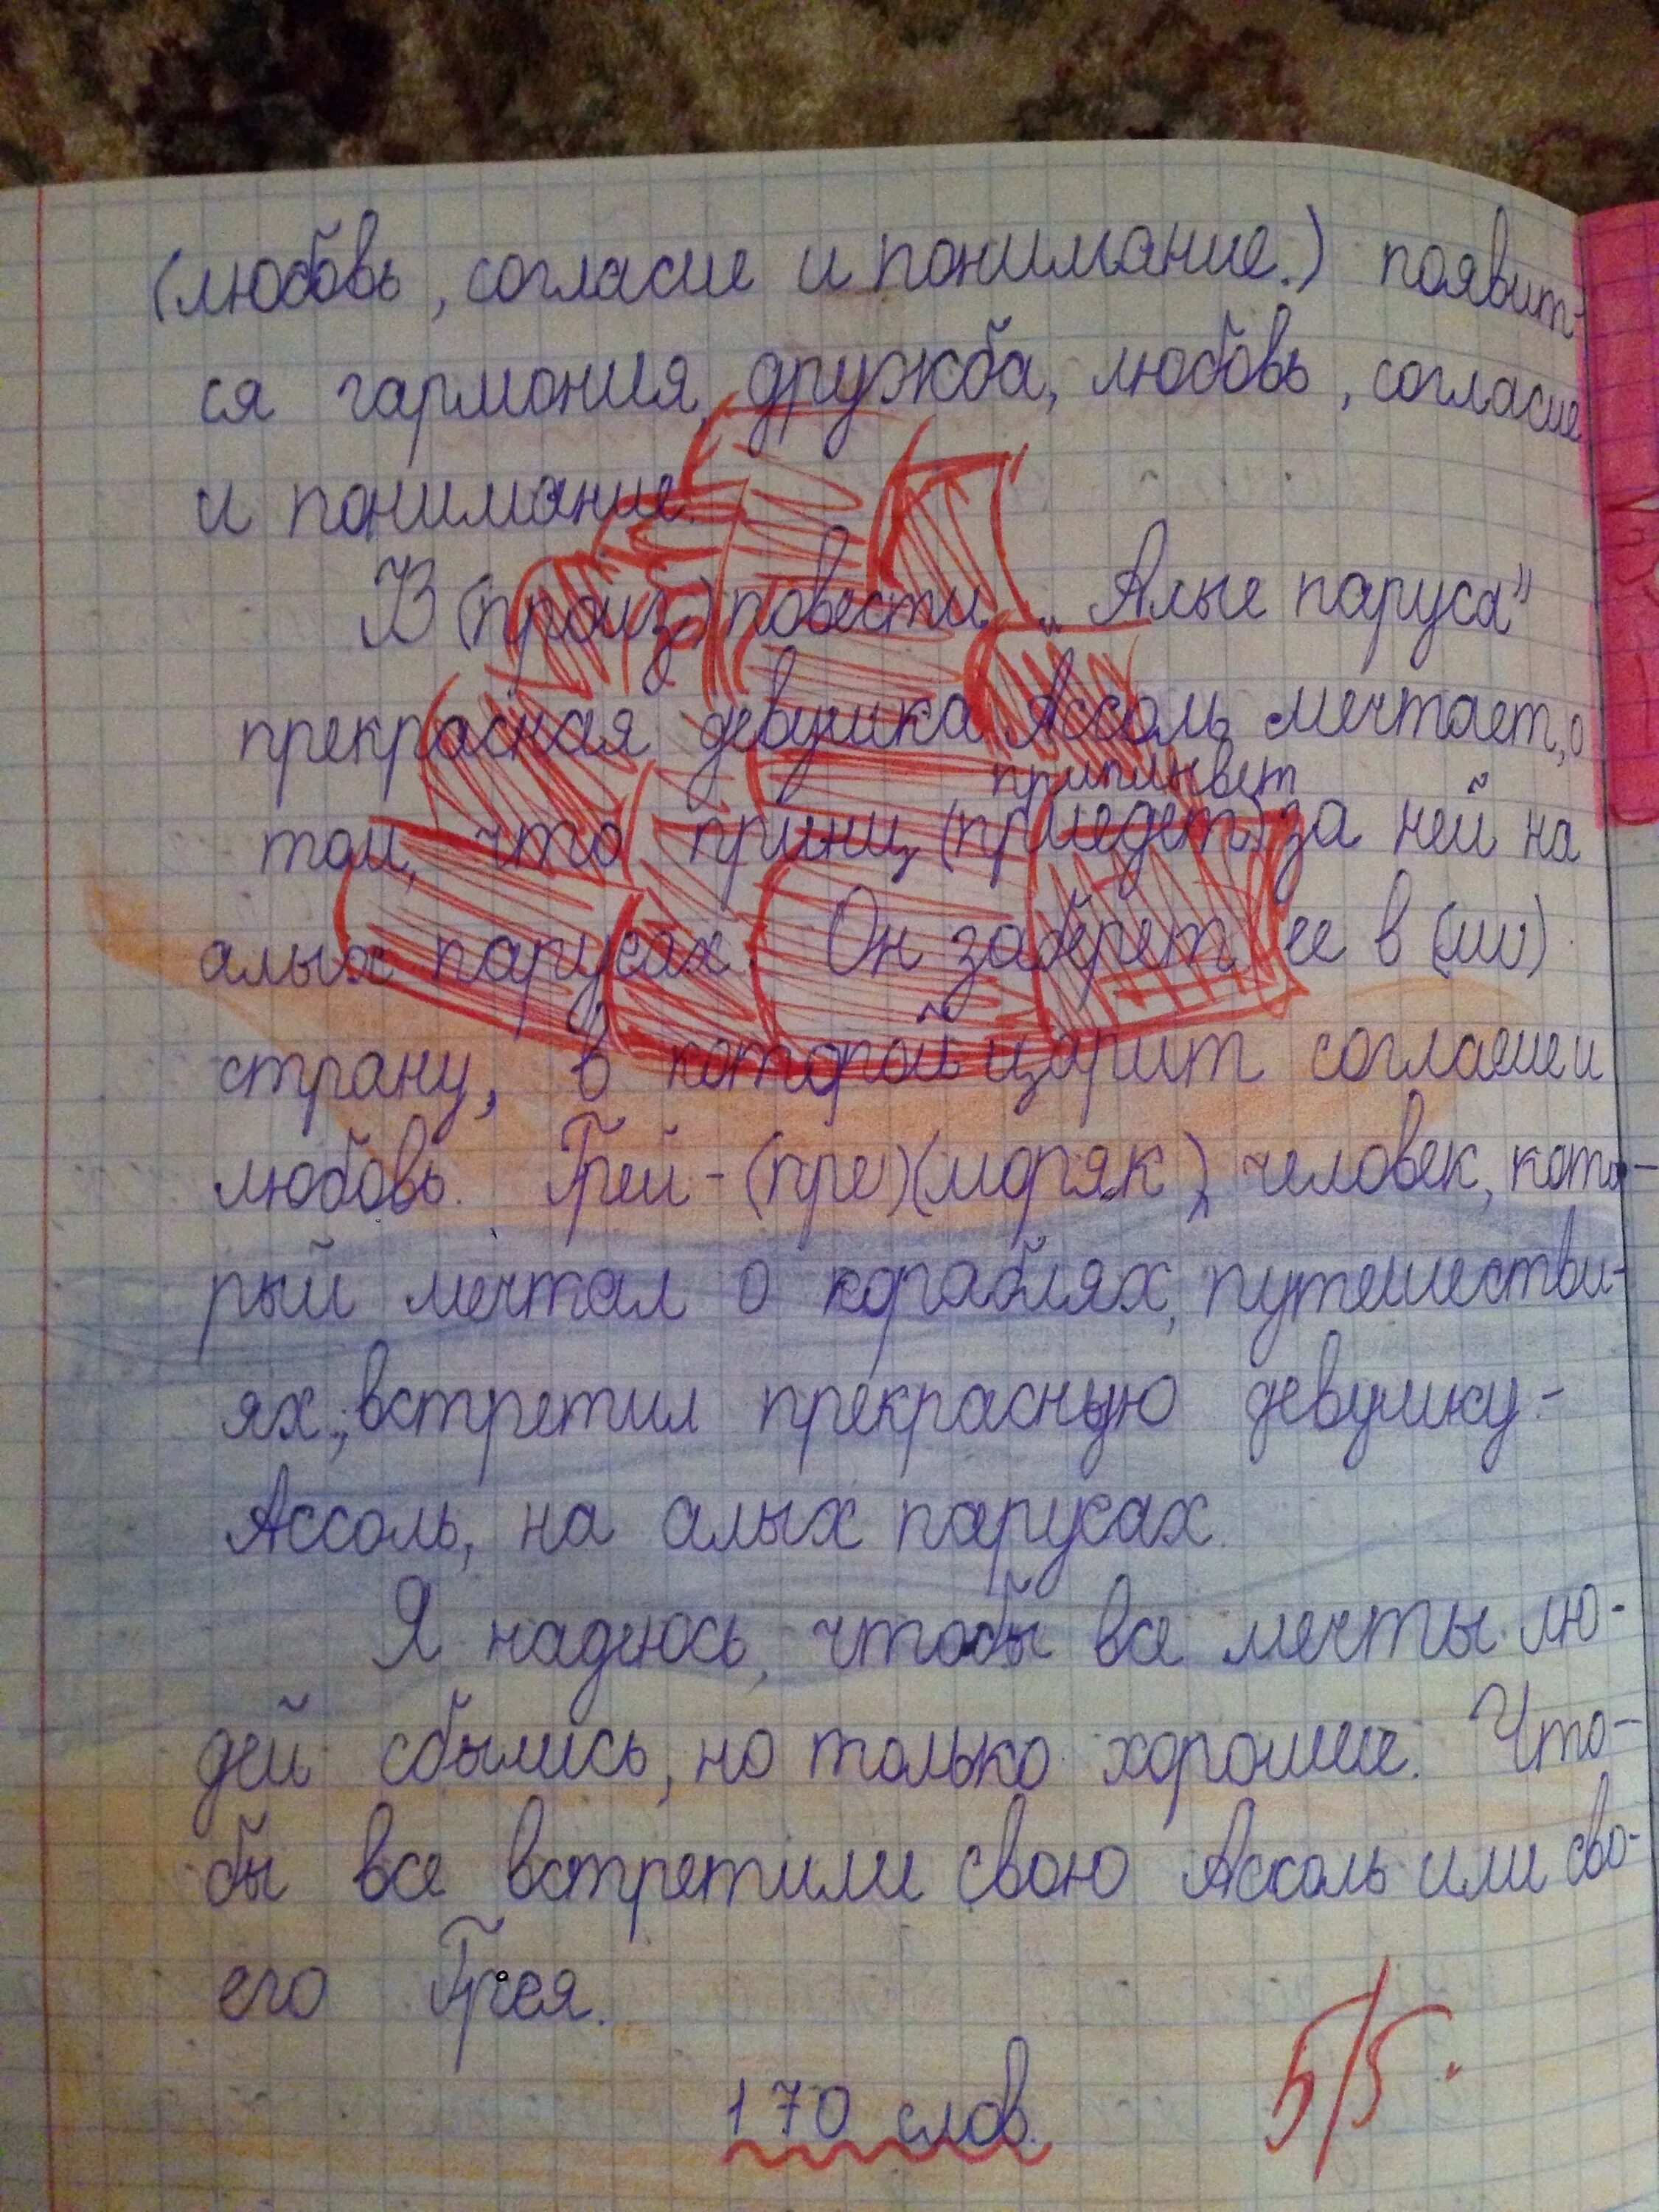 (любовь, согласие и понимание.) появит-
ся гармония, дружба, любовь, согласие
и понимание.
В (произ) повести „Алые паруса"
прекрасная девушка Ассоль мечтает, о
приплывет
том, что принц (приедет) за ней на
алых парусах. Он заберет ее в (ши)
страну, в которой царит согласие и
любовь. Грей - (пре) (моряк), человек, кото-
рый мечтал о кораблях, путешестви-
ях, встретил прекрасную девушку -
Ассоль, на алых парусах.
Я надеюсь, чтобы все мечты лю-
дей сбылись, но только хорошие. Что-
бы все встретили свою Ассоль или сво-
его Грея.
170 слов.
5/5.